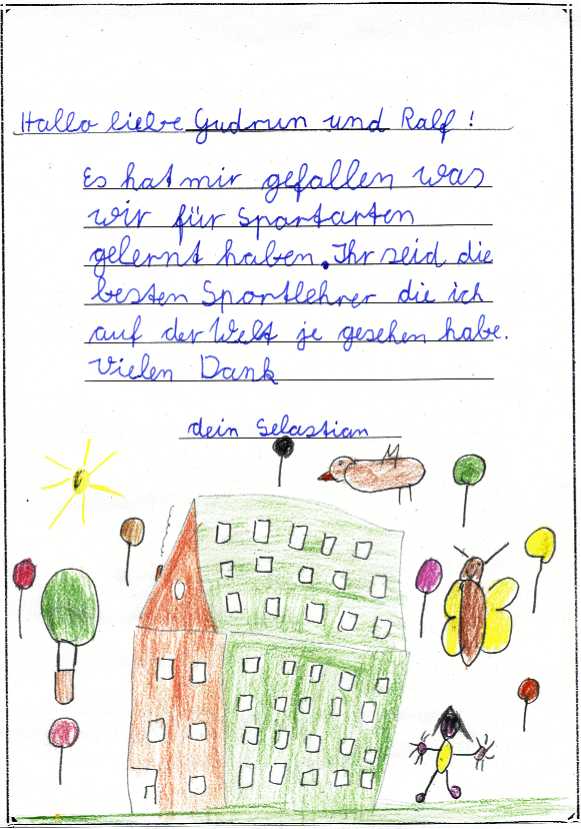 Hallo liebe Gudrun und Ralf!
Es hat mir gefallen was
wir für Spartarten
gelernt haben. Ihr seid die
besten Sportlehrer die ich
auf der Welt je gesehen habe.
Vielen Dank
dein Selastian